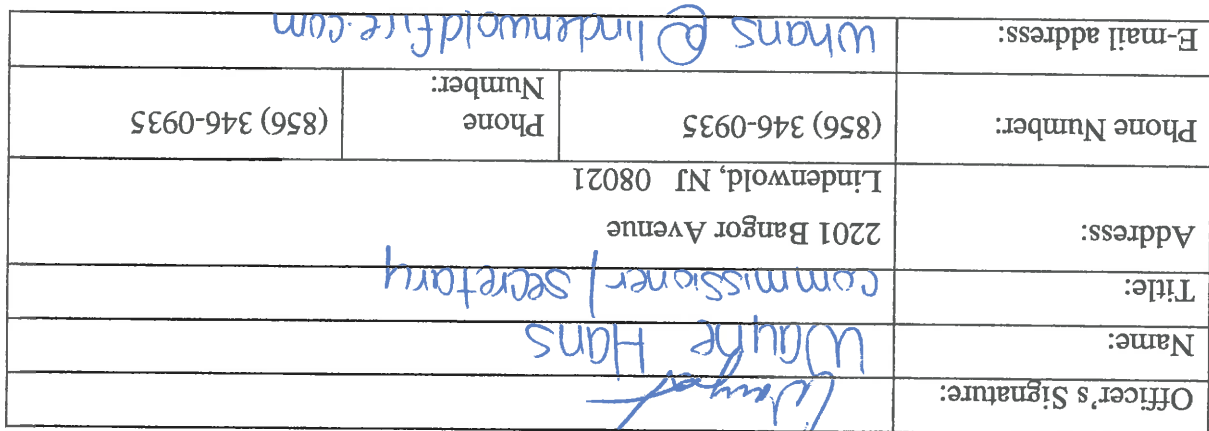 Officer's Signature:
Name: Wayne Hans
Title: Commissioner/Secretary
Address: 2201 Bangor Avenue
Lindenwold, NJ 08021
Phone Number: (856) 346-0935 Phone Number: (856) 346-0935
E-mail address: whans@lindenwoldfire.com